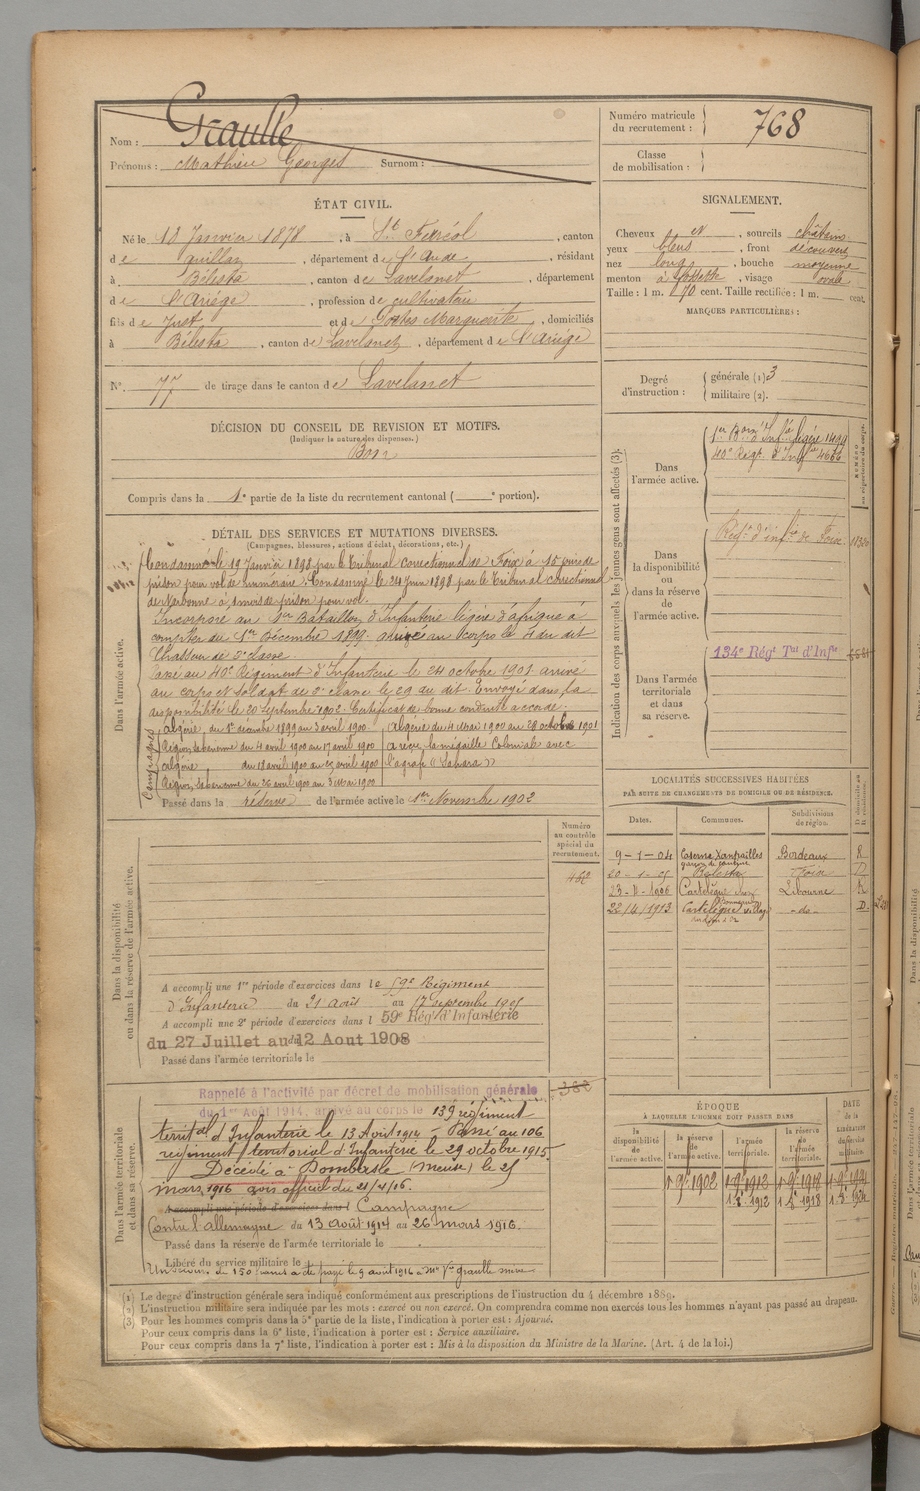 Nom : Graulle
Prénoms : Mathieu Georges Surnom :
Numéro matricule du recrutement : 768
Classe de mobilisation :
ÉTAT CIVIL.
Né le 18 Janvier 1878, à St Ferréol, canton
de Quillan, département de l'Aude, résidant
à Bélesta, canton de Lavelanet, département
de l'Ariège, profession de cultivateur
fils de Just et de Marguerite, domiciliés
à Bélesta, canton de Lavelanet, département de l'Ariège
N°. 77 de tirage dans le canton de Lavelanet
SIGNALEMENT.
Cheveux et, sourcils châtains
yeux bleus, front découvert
nez long, bouche moyenne
menton à fossette, visage ovale
Taille : 1 m. 70 cent. Taille rectifiée : 1 m. cent.
MARQUES PARTICULIÈRES :
Degré d'instruction : générale (1) 3
militaire (2).
DÉCISION DU CONSEIL DE REVISION ET MOTIFS.
(Indiquer la nature des dispenses.)
Bon
Compris dans la 1e partie de la liste du recrutement cantonal ( e portion).
DÉTAIL DES SERVICES ET MUTATIONS DIVERSES.
(Campagnes, blessures, actions d'éclat, décorations, etc.)
Dans l'armée active.
Condamné le 19 Janvier 1898 par le Tribunal correctionnel de Foix à 15 jours de
prison pour vol de numéraire. Condamné le 24 Juin 1898 par le Tribunal correctionnel
de Narbonne à 1 mois de prison pour vol.
Incorporé au 1er Bataillon d'Infanterie légère d'afrique à
compter du 1er Décembre 1899. arrivé au corps le 4 du dit
Chasseur de 2e classe.
Passé au 40e Régiment d'Infanterie le 24 octobre 1901 arrivé
au corps et soldat de 2e classe le 29 du dit. Envoyé dans la
disponibilité le 20 Septembre 1902. Certificat de bonne conduite accordé.
Campagnes
Algérie, du 1er décembre 1899 au 3 avril 1900.
Région saharienne du 4 avril 1900 au 17 avril 1900
Algérie, du 18 avril 1900 au 25 avril 1900
Région saharienne du 26 avril 1900 au 3 mai 1900
Algérie du 4 Mai 1900 au 28 octobre 1901
a reçu la médaille Coloniale avec
l'agrafe "Sahara"
Passé dans la réserve de l'armée active le 1er Novembre 1902
Indication des corps auxquels les jeunes gens sont affectés (3).
NUMÉRO au répertoire du corps.
Dans l'armée active.
1er Bon d'Inf.ie légère 1499
40e Régt. d'Inf.ie 4666
Dans la disponibilité ou dans la réserve de l'armée active.
Régt d'inf.ie de Foix
Dans l'armée territoriale et dans sa réserve.
134e Régt Tal d'Infie
LOCALITÉS SUCCESSIVES HABITÉES
PAR SUITE DE CHANGEMENTS DE DOMICILE OU DE RÉSIDENCE.
Dates. Communes. Subdivisions de région. D domicile ou R résidence.
9-1-04 Caserne Xantrailles Bordeaux R
garçon de cantine
20-1-05 Bélesta Foix D
1906 Libourne R
22/4/1913 village -do- D.
Dans la disponibilité ou dans la réserve de l'armée active.
Numéro au contrôle spécial du recrutement.
A accompli une 1re période d'exercices dans le 59e Régiment
d'Infanterie du 21 août au 17 septembre 1905
A accompli une 2e période d'exercices dans l 59e Rég. d'Infanterie
du 27 Juillet au 12 Aout 1908
Passé dans l'armée territoriale le
Dans l'armée territoriale et dans sa réserve.
Rappelé à l'activité par décret de mobilisation générale
du 1er Août 1914, arrivé au corps le 139 régiment
territal d'Infanterie le 13 Août 1914 - Passé au 106
régiment territorial d'Infanterie le 29 octobre 1915.
Décédé à Dombasle (Meuse) le 25
mars 1916 avis officiel du 21/4/16.
A accompli une période d'exercices dans l Campagne
Contre l'allemagne du 13 août 1914 au 26 mars 1916.
Passé dans la réserve de l'armée territoriale le
Libéré du service militaire le
Un secours de 150 francs a été payé le 9 août 1916 à Mme Vve Graulle mère
ÉPOQUE
À LAQUELLE L'HOMME DOIT PASSER DANS
la disponibilité de l'armée active.
la réserve de l'armée active.
l'armée territoriale.
la réserve de l'armée territoriale.
DATE de la LIBÉRATION du service militaire.
1 9bre 1902 1 9bre 1913 1 9bre 1918 1 9bre 1924
1 8bre 1912 1 8bre 1918 1 8bre 1924
(1) Le degré d'instruction générale sera indiqué conformément aux prescriptions de l'instruction du 4 décembre 1889.
(2) L'instruction militaire sera indiquée par les mots : exercé ou non exercé. On comprendra comme non exercés tous les hommes n'ayant pas passé au drapeau.
(3) Pour les hommes compris dans la 5e partie de la liste, l'indication à porter est : Ajourné.
Pour ceux compris dans la 6e liste, l'indication à porter est : Service auxiliaire.
Pour ceux compris dans la 7e liste, l'indication à porter est : Mis à la disposition du Ministre de la Marine. (Art. 4 de la loi.)